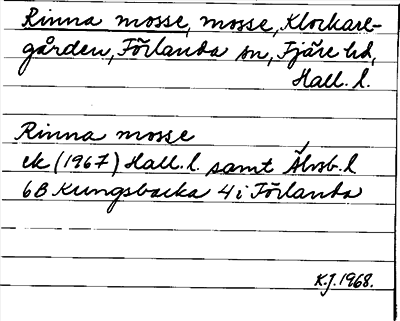 Rinna mosse, mosse, Klockare-
gården, Förlanda sn, Fjäre hd,
Hall. l.
Rinna mosse
ek (1967) Hall. l. samt Älvsb. l
6B Kungsbacka 4i Förlanda
K.J. 1968.